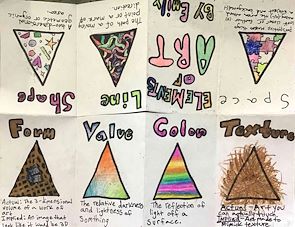 ELEMENTS
OF
ART
BY: Emily
Line
The path of a moving
point or a mark of
direction.
Shape
A two-dimensional
geometric or organic
area.
Space
Form
Actual: The 3-dimensional
volume of a work of
art
Implied: An image that
look like it would be 3D
Value
The relative darkness
and lightness of
Somthing
Color
The reflection of
light off a
Surface.
Texture
Actual - Art you
can actually touch
Implied - Art made to
Mimic texture